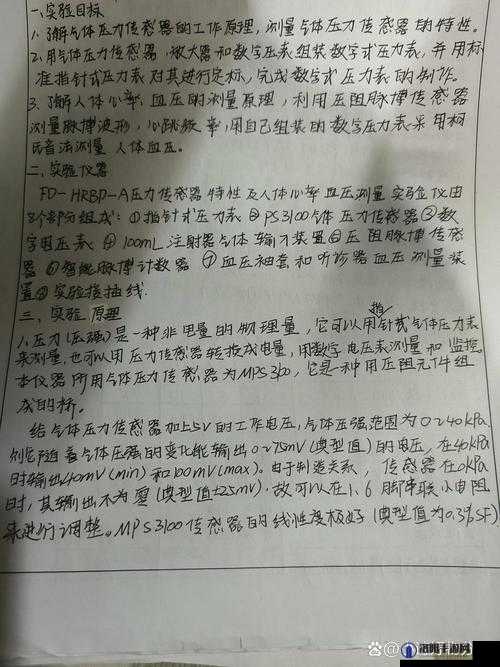 一、实验目标
1.了解气体压力传感器的工作原理,测量气体压力传感器的特性。
2.用气体压力传感器,放大器和数字压表组装数字式压力表,并用标
准指针式压力表对其进行定标,完成数字式压力表的制作。
3.了解人体心率,血压的测量原理,利用压阻脉搏传感器
测量脉搏波形,心跳频率,用自己组装的数字压力表采用柯
氏音法测量人体血压。
二、实验仪器
FD-HRBP-A压力传感器特性及人体心率血压测量实验仪由
8个部分组成:①指针式压力表②PS3100气体压力传感器③数
字电压表④100mL注射器气体输入装置⑤压阻脉搏传感
器⑥智能脉搏计数器⑦血压袖套和听诊器血压测量装
置⑧实验接插线.
三、实验原理
1.压力(压强)是一种非电量的物理量,它可以用指针式气体压力表
来测量,也可以用压力传感器转换成电量,用数字电压表测量和监控
本仪器所用气体压力传感器为MPS3100,它是一种用压阻元件组
成的桥。
给气体压力传感器加上5V的工作电压,气体压强范围为0~40kPa,
则它随着气体压强的变化能输出0~75mV(典型值)的电压,在40kPa
时输出40mV(min)和100mV(max)。由于制造关系,传感器在0kPa
时,其输出不为零(典型值±25mV).故可以在1、6脚串联小电阻
来进行调整。MPS3100传感器的线性度极好(典型值为0.3%SF)
洛阳手游网